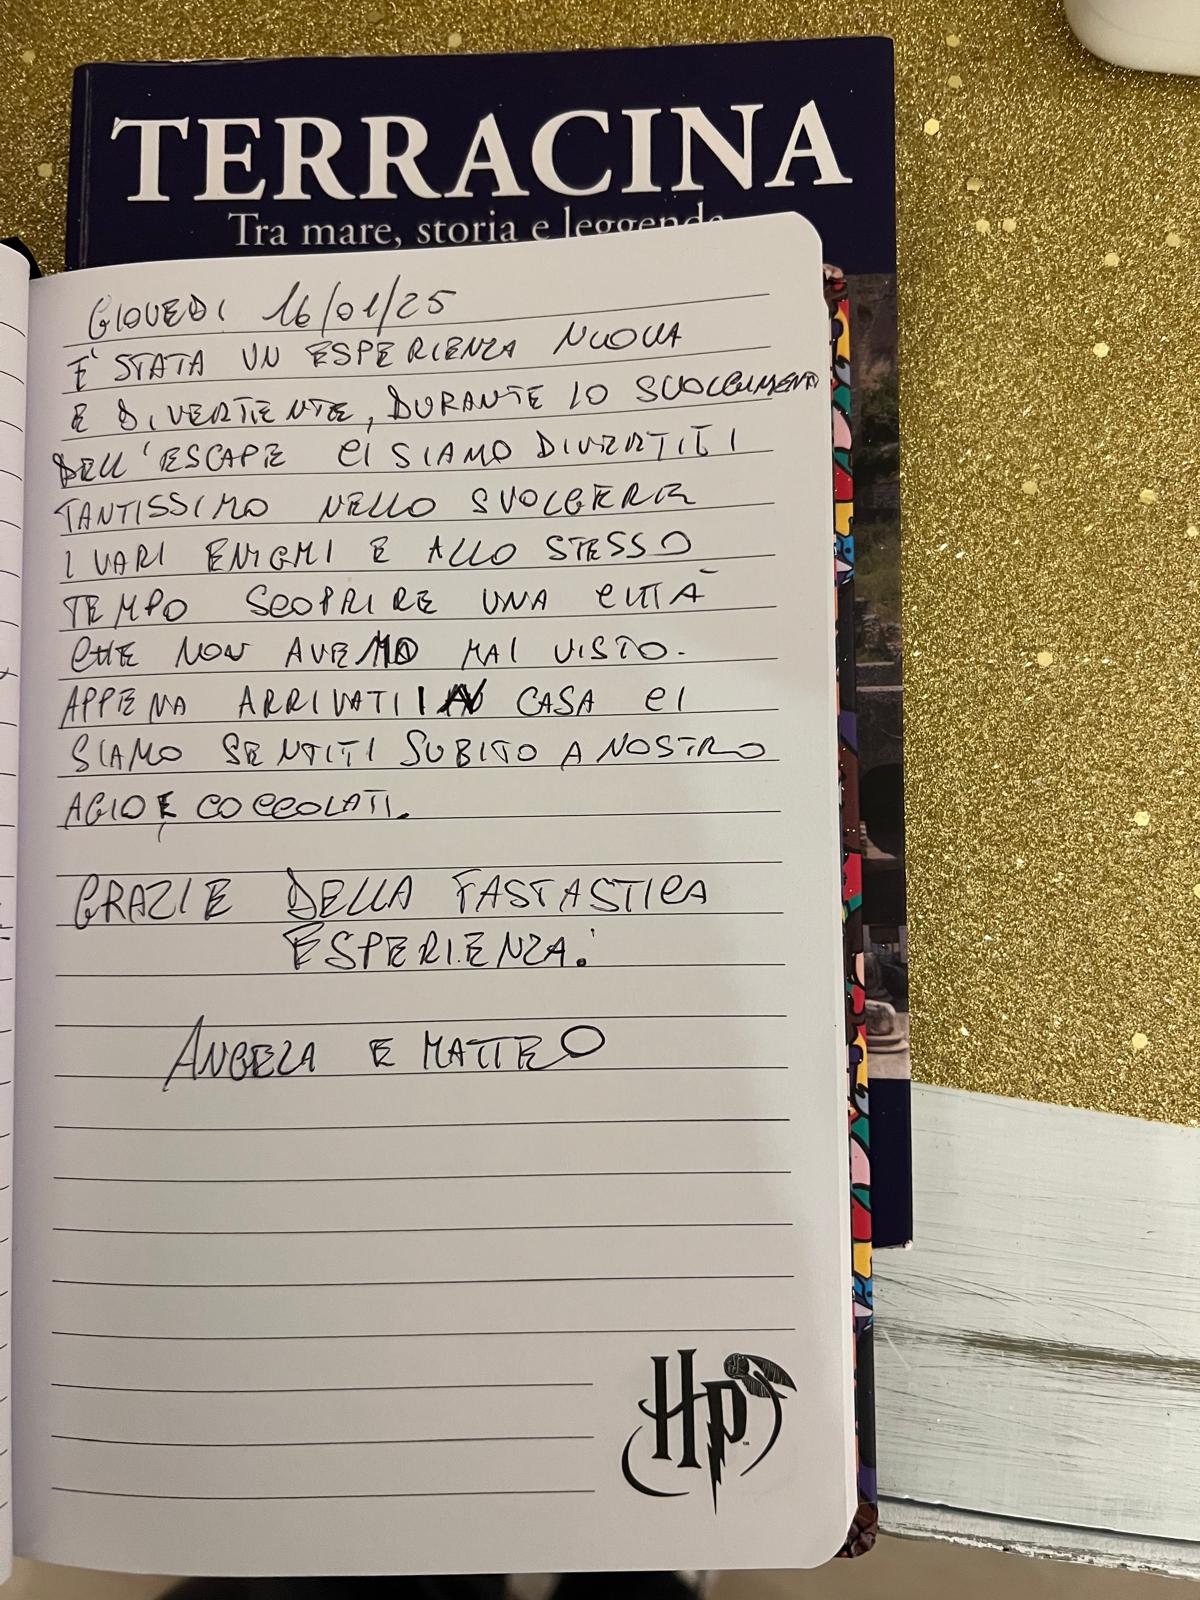 TERRACINA
Tra mare, storia e leggende
GIOVEDI 16/01/25
E' STATA UN ESPERIENZA NUOVA
E DIVERTENTE, DURANTE LO SVOLGIMENTO
DELL'ESCAPE CI SIAMO DIVERTITI
TANTISSIMO NELLO SVOLGERE
I VARI ENIGMI E ALLO STESSO
TEMPO SCOPRIRE UNA CITTÀ
CHE NON AVEMO MAI VISTO.
APPENA ARRIVATI IN CASA CI
SIAMO SENTITI SUBITO A NOSTRO
AGIO E COCCOLATI.
GRAZIE DELLA FASTASTICA
ESPERIENZA!
ANGELA E MATTEO
HP